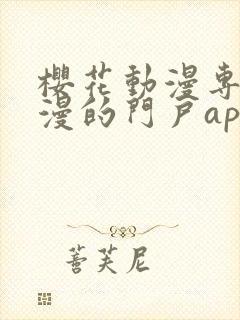 櫻花動漫專
漫的門戶ap
蓍芙尼